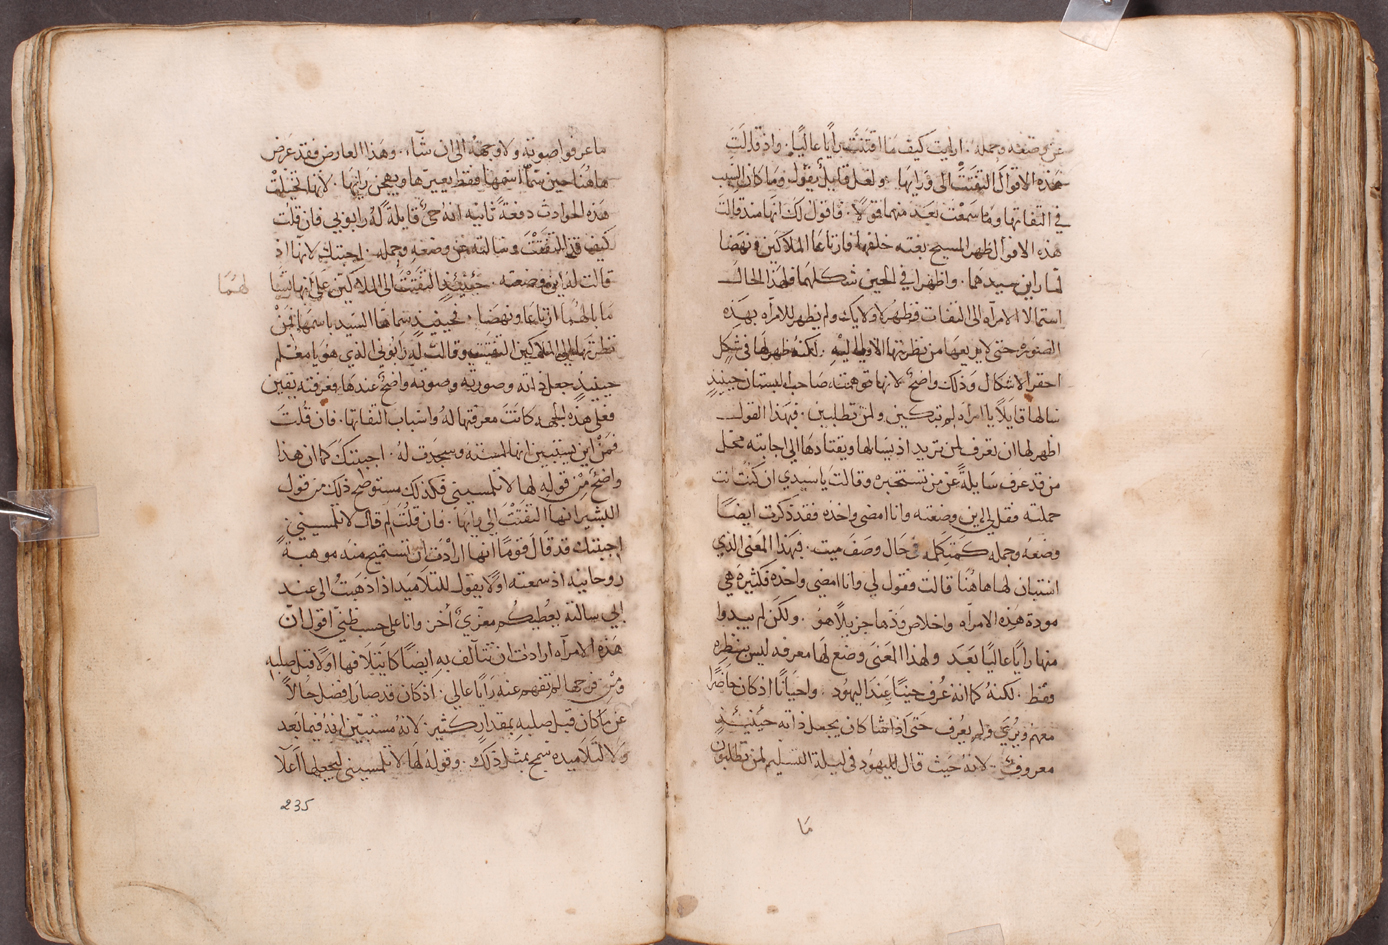 عن وضعه وحمله. ارايت كيف ما اقتنت رايًا عاليًا. واذ قالت
هذه الاقوال التفتت الى ورايها. ولعل قايلٌ يقول وما كان السبب
في التفاتها وما سمعت بعد منهما قولاً. فاقول لك انها منذ قالت
هذه الاقوال ظهر المسيح بغته خلفها فارتاعا الملاكين ونهضا
لما راين سيدهما. واظهرا في الحين شكلهما فلهذا الحال
استمالا الامرآه الى التفات فظهر لاولايك ولم يظهر للامرآه بهذه
الصوره حتى لا يريعها من نظرتها الاوله اليه. لكنه ظهر لها في شكل
احقر الاشكال وذلك واضحٌ لانها توهمته صاحب البستان حينيدٍ
سالها قايلاً يا امرآه لم تبكين ولمن تطلبين. فبهذا القول
اظهر لها ان تعرف لمن تريد اذ يسالها ويقتادها الى اجابته محل
من قد عرف سايلةً عن من تستخبره وقالت يا سيدي ان كنت انت
حملته فقل لي اين وضعته وانا امضي واخذه فقد ذكرت ايضًا
وضعه وحمله كمتكلمه في حال وصف ميت. فبهذا المعنى الذي
استبان لها هاهنا قالت وقول لي وانا امضي واخذه فكثيرة هي
مودة هذه الامرآه واخلاص ودّها جزيلاً هو. ولكن لم يبدوا
منها رايًا عاليًا بعد ولهذا المعنى وضع لها معرفه ليس بنظره
فقط. لكنهُ كما انه عُرف حينًا عند اليهود. واحيانًا اذ كان حاضرًا
معهم ويُري ولم يعُرف حتى اذا شا كان يجعل ذاته حينيئذٍ
معروفٌ. لانه حيث قال لليهود في ليلة التسليم لمن تطلبون
مَا
ما عرفوا صوته ولا وجهه الى ان شآء. وهذا العارض فقد عَرض
هاهنا حين سمّا اسمها فقط يعيرها ويهجن رايها. لانها تخيلت
هذه الحوادث دفعةً ثانيه انه حيٌ قايلةً لهُ رابوني فان قلت
كيف قد التفتت وسالته عن وضعه وحمله. اجبتك لانها اذ
قالت له اين وضعته. حينيذٍ التفتت الى الملاكين على انها تسا
لهمَا
ما بالهُما ارتاعا ونهضا. فحينيذٍ سماها السيد باسمها فمن
نظرتها الى الملاكين التفتت وقالت له رابوني الذي هو يا معلم
حينيدٍ جعل ذاته وصورته وصوته واضحٌ عندها فعرفته يقين
فعلى هذه الجهه كانت معرفتها له واسباب التفاتها. فان قلت
فمن اين يستبين انها لمسته وسجدت لهُ. اجبتك كما ان هذا
واضحٌ من قوله لها لا تلمسيني فكذلك مستوضح ذلك من قول
البشير انها التفتت الى رايها. فان قلت لم قال لا تلمسيني
اجبتك قد قال قومًا انها ارادت ان تستميح منه موهبةً
روحانيه اذ سمعته اولاً يقول للتلاميد اذا ذهبت الى عند
ابي سالته يعُطيكم معزيٌ اُخر وانا على حسب ظني اقول ان
هذه الامرآه ارادت ان تتآلف به ايضًا كايتلافها اولاً قبل صلبه
ومن فرحها لم تفهم عنه رايًا عالي. اذ كان قد صار افضل حالاً
عن ما كان قبل صلبه بمقدار كثير. لانهُ مستبين انه فيما بَعد
ولا التلاميده سمح بمثل ذلك. وقوله لها لا تلمسيني ليجعلها اَعلا
235